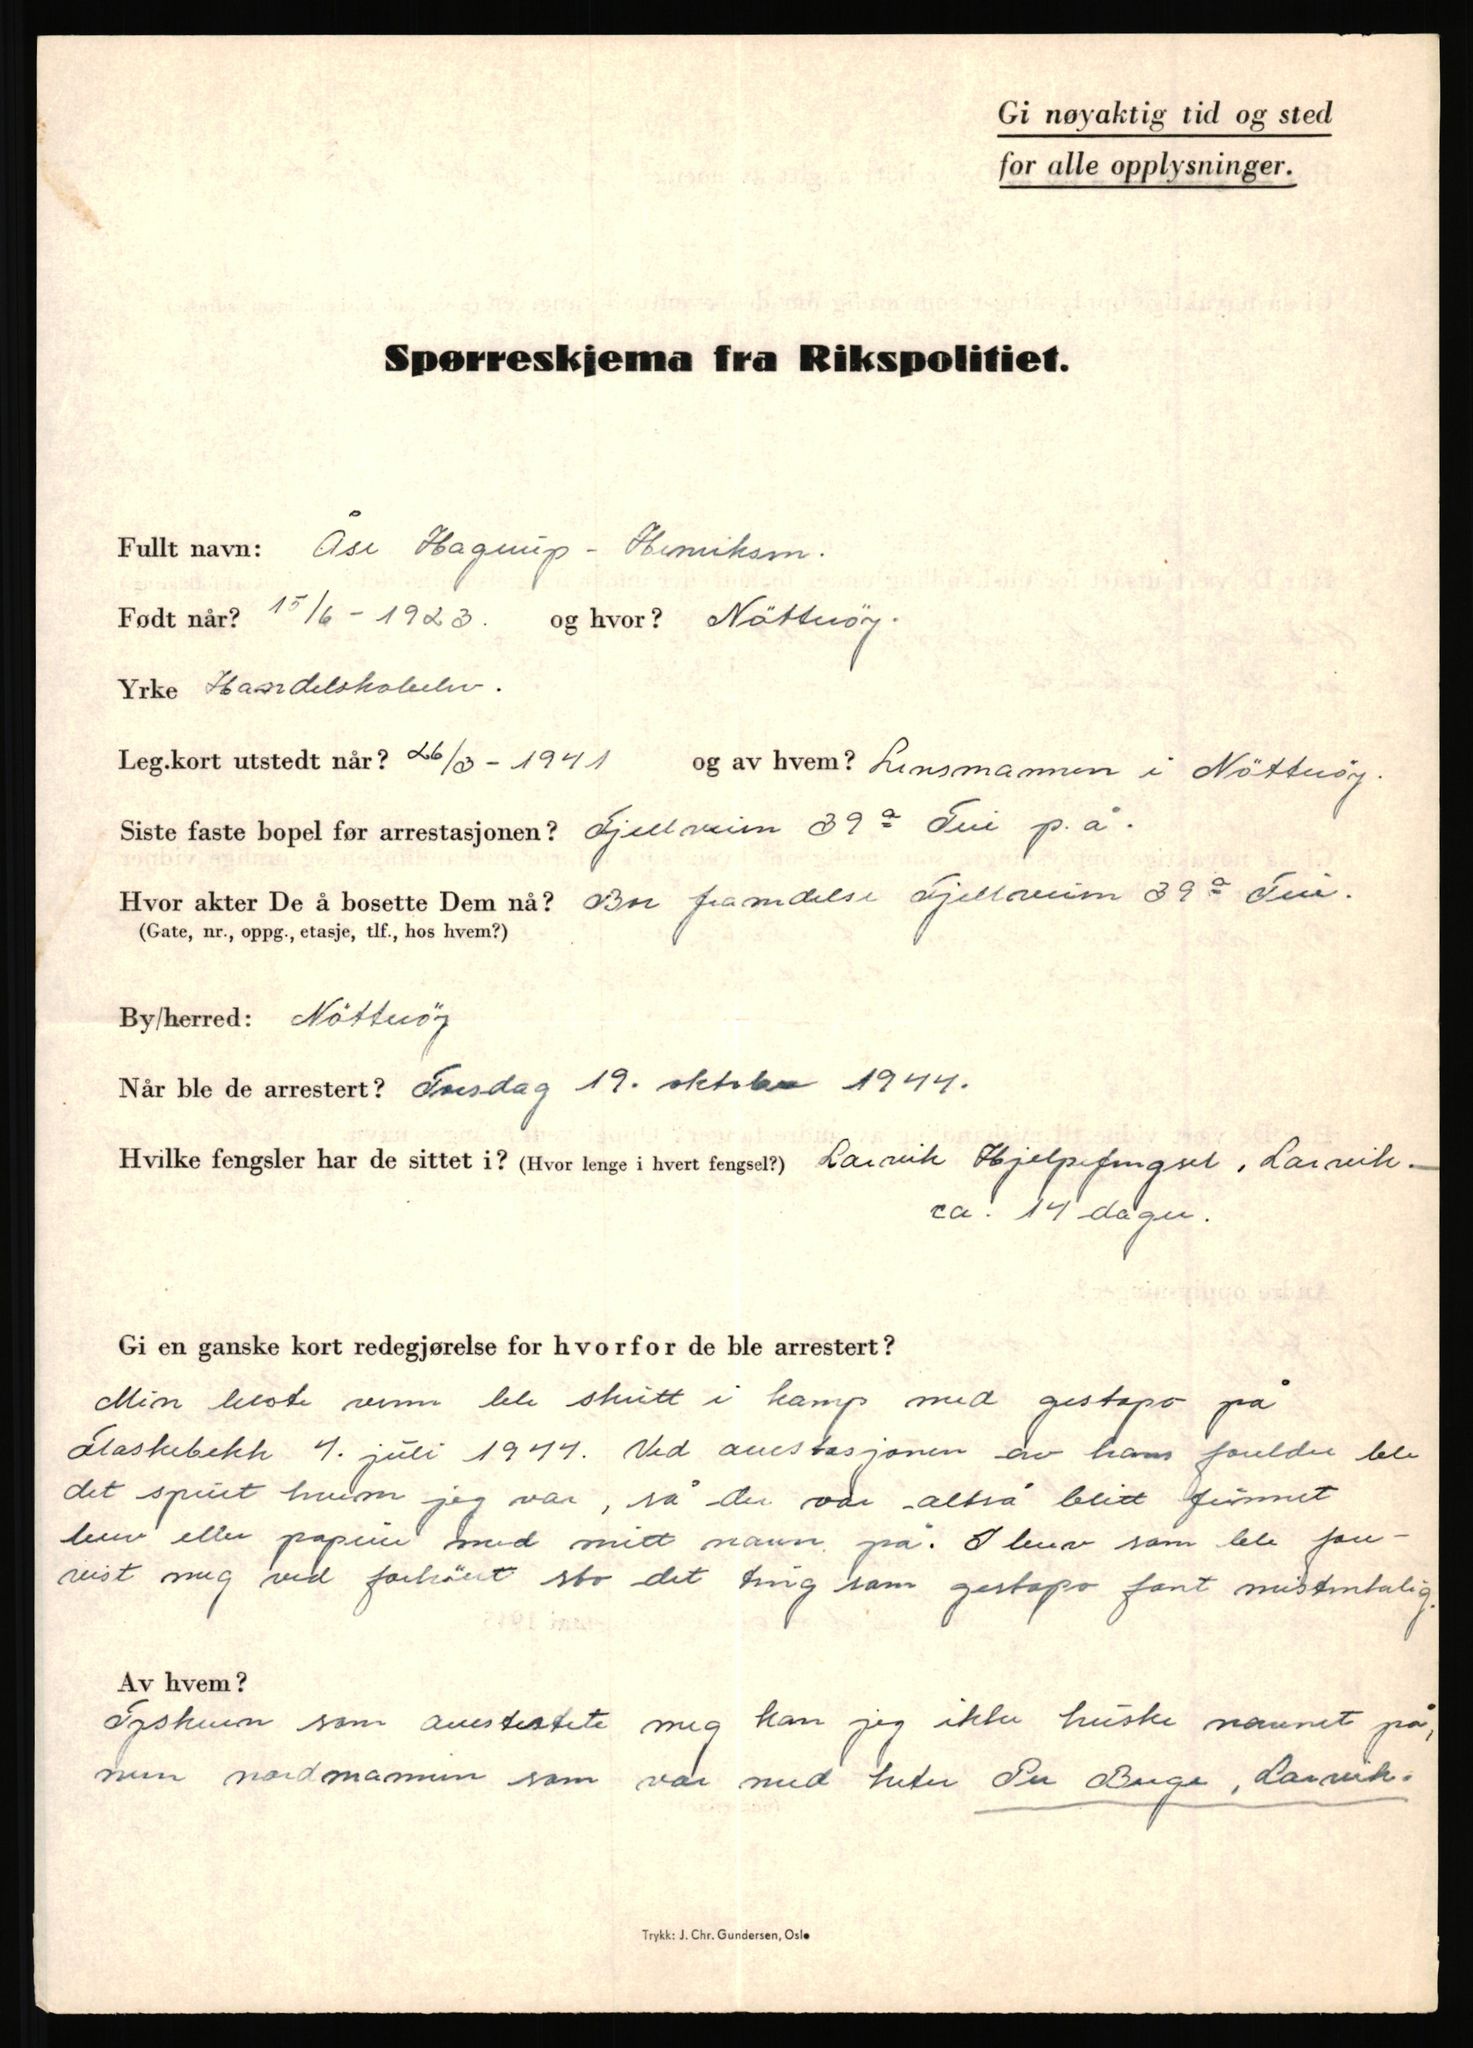 Gi nøyaktig tid og sted
for alle opplysninger.
Spørreskjema fra Rikspolitiet.
Fullt navn: Åse Hagerup - Henriksen.
Født når? 15/6 - 1923. og hvor? Nötteröy.
Yrke Handelskoleelev.
Leg.kort utstedt når? 26/3 - 1941 og av hvem? Lensmannen i Nötteröy.
Siste faste bopel før arrestasjonen? Fjellveien 39a Teie p.å.
Hvor akter De å bosette Dem nå? Bor framdelse Fjellveien 39a Teie.
(Gate, nr., oppg., etasje, tlf., hos hvem?)
By/herred: Nötteröy
Når ble de arrestert? Torsdag 19. oktober 1944.
Hvilke fengsler har de sittet i? (Hvor lenge i hvert fengsel?) Larvik Hjelpefengsel, Larvik -
ca. 14 dager.
Gi en ganske kort redegjørelse for hvorfor de ble arrestert?
Min beste venn ble skutt i kamp med gestapo på
Flaskebekk 4. juli 1944. Ved arrestasjonen av hans foreldre ble
det spurt hvem jeg var, så der var altså blitt funnet
brev eller papirer med mitt navn på. I brev som ble fore-
vist meg ved forhöret sto det ting som gestapo fant mistenkelig.
Av hvem?
Tyskeren som arresterte meg kan jeg ikke huske navnet på,
men nordmannen som var med heter Per Berge, Larvik.
Trykk: J. Chr. Gundersen, Oslo